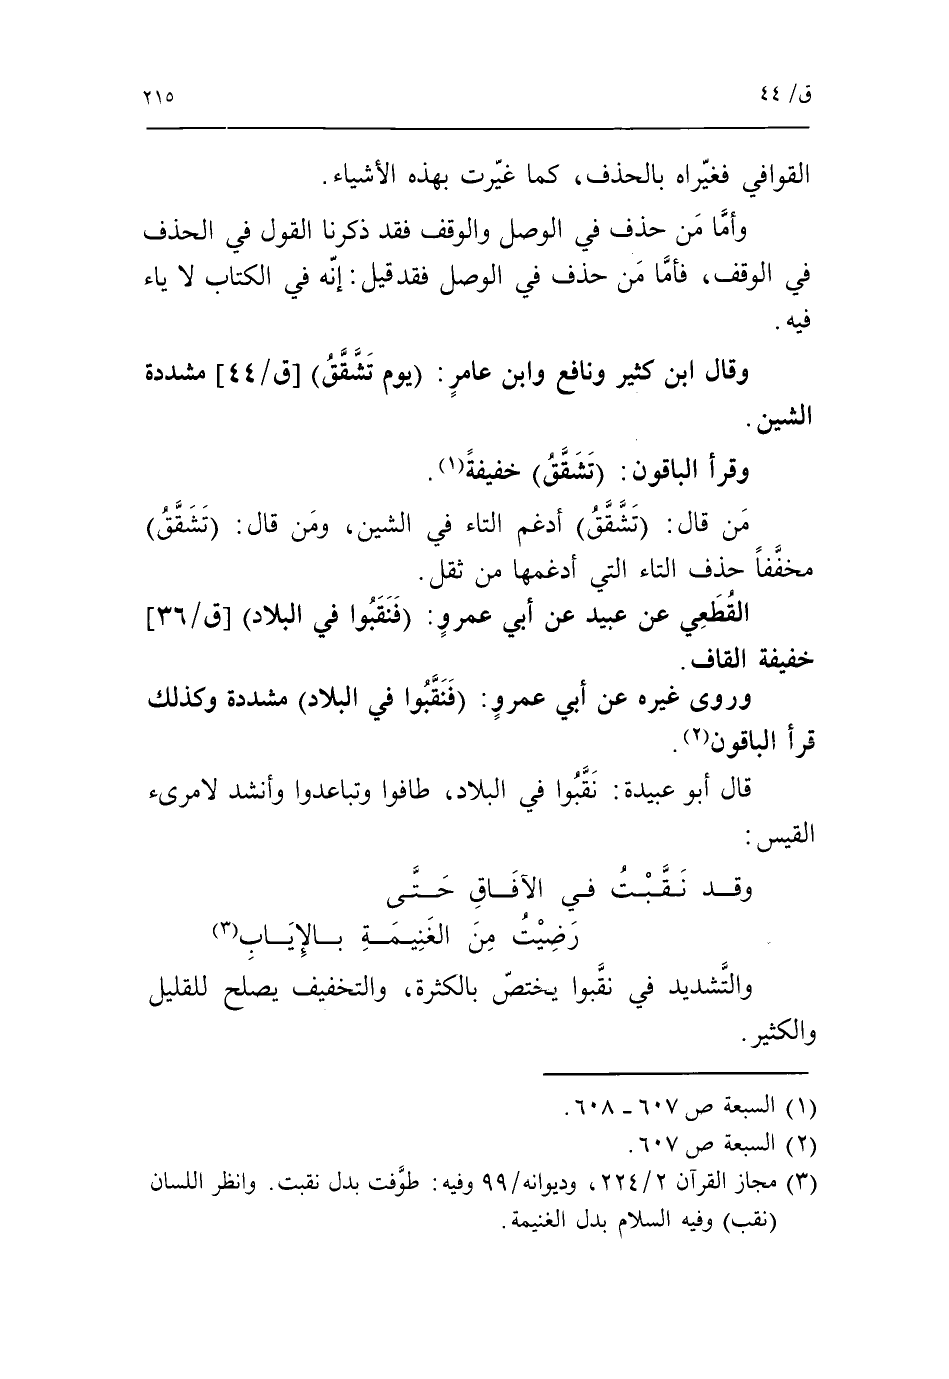 ق/ ٤٤
٢١٥
القوافي فغيّراه بالحذف، كما غيّرت بهذه الأشياء.
وأمَّا مَن حذف في الوصل والوقف فقد ذكرنا القول في الحذف
في الوقف، فأمَّا مَن حذف في الوصل فقد قيل: إنّه في الكتاب لا ياء
فيه.
وقال ابن كثير ونافع وابن عامرٍ: (يوم تَشَّقَّقُ) [ق/ ٤٤] مشددة
الشين.
وقرأ الباقون: (تَشَقَّقُ) خفيفةً(١).
مَن قال: (تَشَّقَّقُ) أدغم التاء في الشين، ومَن قال: (تَشَقَّقُ)
مخفَّفاً حذف التاء التي أدغمها من ثقل.
القُطَعِي عن عبيد عن أبي عمروٍ: (فَنَقَبُوا في البلاد) [ق/ ٣٦]
خفيفة القاف.
وروى غيره عن أبي عمروٍ: (فَنَقَّبُوا في البلاد) مشددة وكذلك
قرأ الباقون(٢).
قال أبو عبيدة: نَقَّبُوا في البلاد، طافوا وتباعدوا وأنشد لامرىء
القيس:
وقـد نَـقَّـبْـتُ فـي الآفَـاقِ حَـتَّـى
رَضِيْتُ مِنَ الغَنِيمَـةِ بـالإِيَـابِ(٣)
والتَّشديد في نقَّبوا يختصّ بالكثرة، والتخفيف يصلح للقليل
والكثير.
(١) السبعة ص ٦٠٧ ـ ٦٠٨.
(٢) السبعة ص ٦٠٧.
(٣) مجاز القرآن ٢/ ٢٢٤، وديوانه/ ٩٩ وفيه: طوَّفت بدل نقبت. وانظر اللسان
(نقب) وفيه السلام بدل الغنيمة.